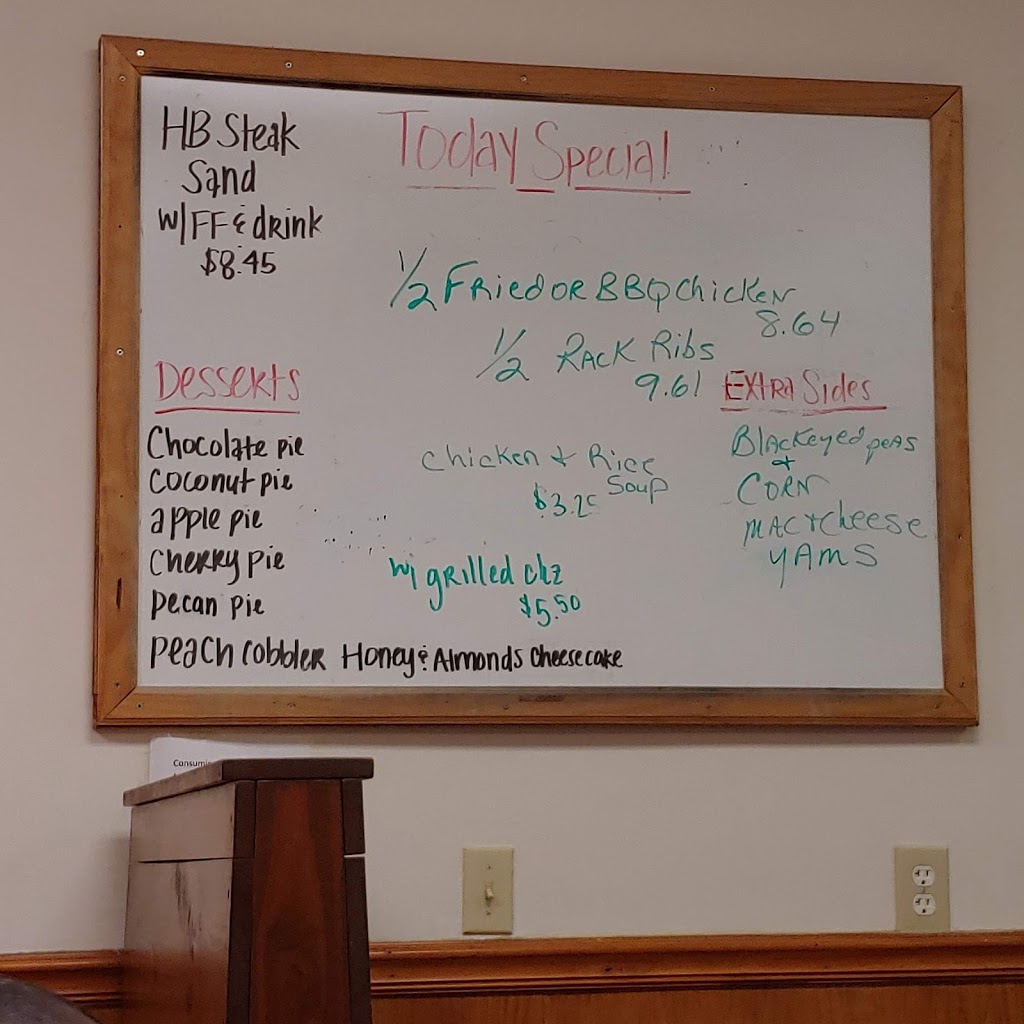 HB Steak
Sand
W/FF & drink
$8.45
Today Special
1/2 Fried OR BBQ Chicken
8.64
1/2 Rack Ribs
9.61
Desserts
Chocolate pie
Coconut pie
apple pie
Cherry pie
pecan pie
peach cobbler Honey & Almonds Cheesecake
Chicken + Rice
Soup
w/ grilled chz
$5.50
Extra Sides
Blackeyed peas
+
CORN
MAC + cheese
YAMS